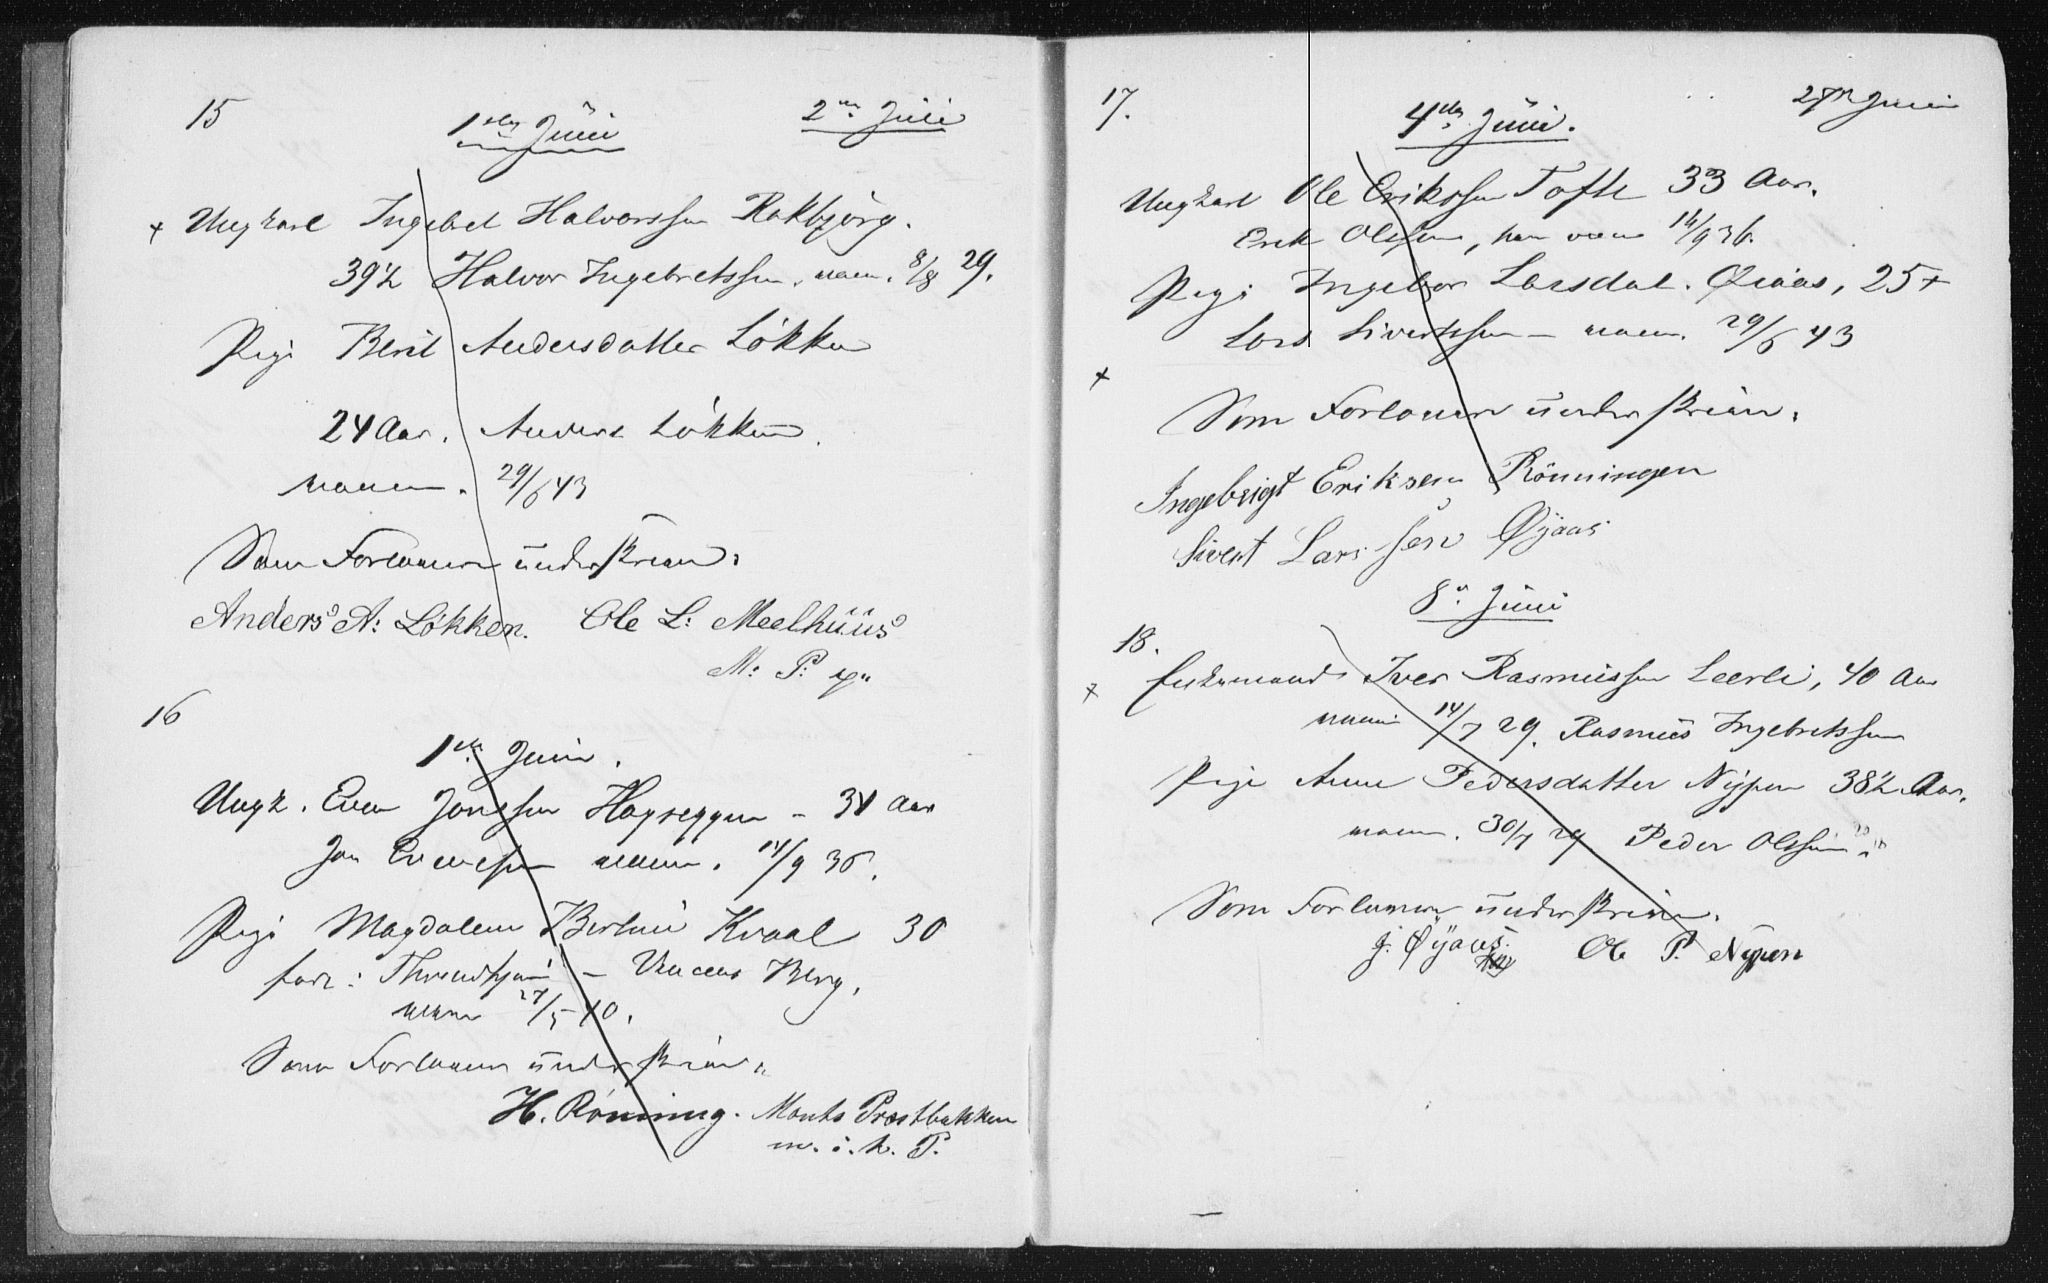 15
1ste Juni
2den Juli
+ Ungkarl Ingebret Halvorssen Rakbjörg.
39½ Halvor Ingebretssen. vacc. 8/8 29.
Pige Berit Andersdatter Løkken
24 Aar. Anders Løkken.
vaccin. 29/6 43
Som Forlovere underskrive:
Anders A: Løkken. Ole L: Meelhuus
M: P: p:
16
1ste Juni.
Ungk. Even Jonssen Hagseggen - 34 Aar
Jon Evensen vaccin. 14/9 36.
Pige Magdalena Kvaal 30
født: Throndhjem - Berg.
vaccin 27/5 40.
Som Forlovere underskrive:
H. Rönning. Monts Præstbakken
m. i. h. P.
17.
4de Juni.
27de Juni
Ungkarl Ole Erikssen Tofte 33 Aar.
Erik Olssen, han vacc 16/9 36.
Pige Ingebor Larsdat. Øiaas, 25 +
Lars Sivertssen - vaccin. 29/6 43
+
Som Forlovere underskrive:
Ingebrigt Eriksen Rönningen
Sivert Larssen Øyaas
8de Juni
18.
+ Enkemand Iver Rasmussen Leerli, 40 Aar
vaccin 14/7 29. Rasmus Ingebretssen
Pige Anne Pedersdatter Nypen 38½ Aar.
vaccin. 30/7 29 Peder Olssen
Som Forlovere underskrive:
J. Øyaas. Ole P. Nypen